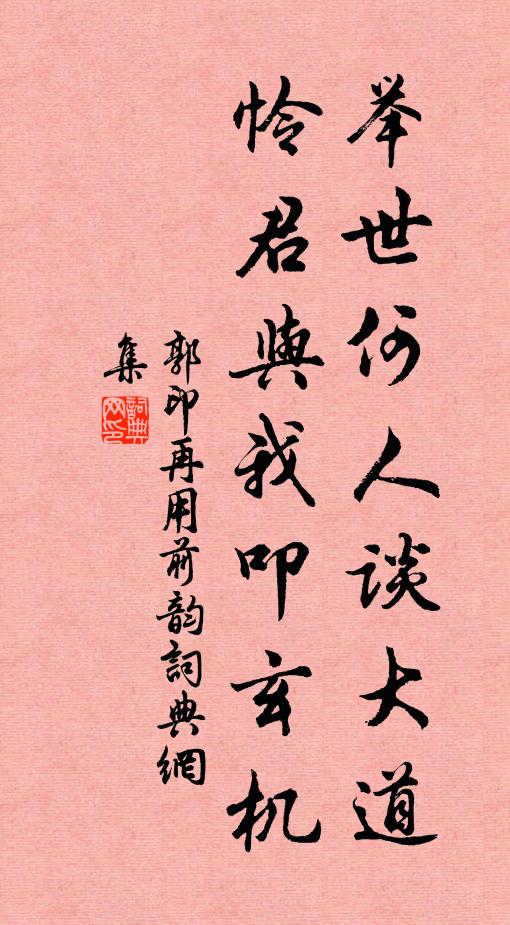 举世何人谈大道
怜君與我叩玄机
郭印再用前韵詞典網
集
詞典网印